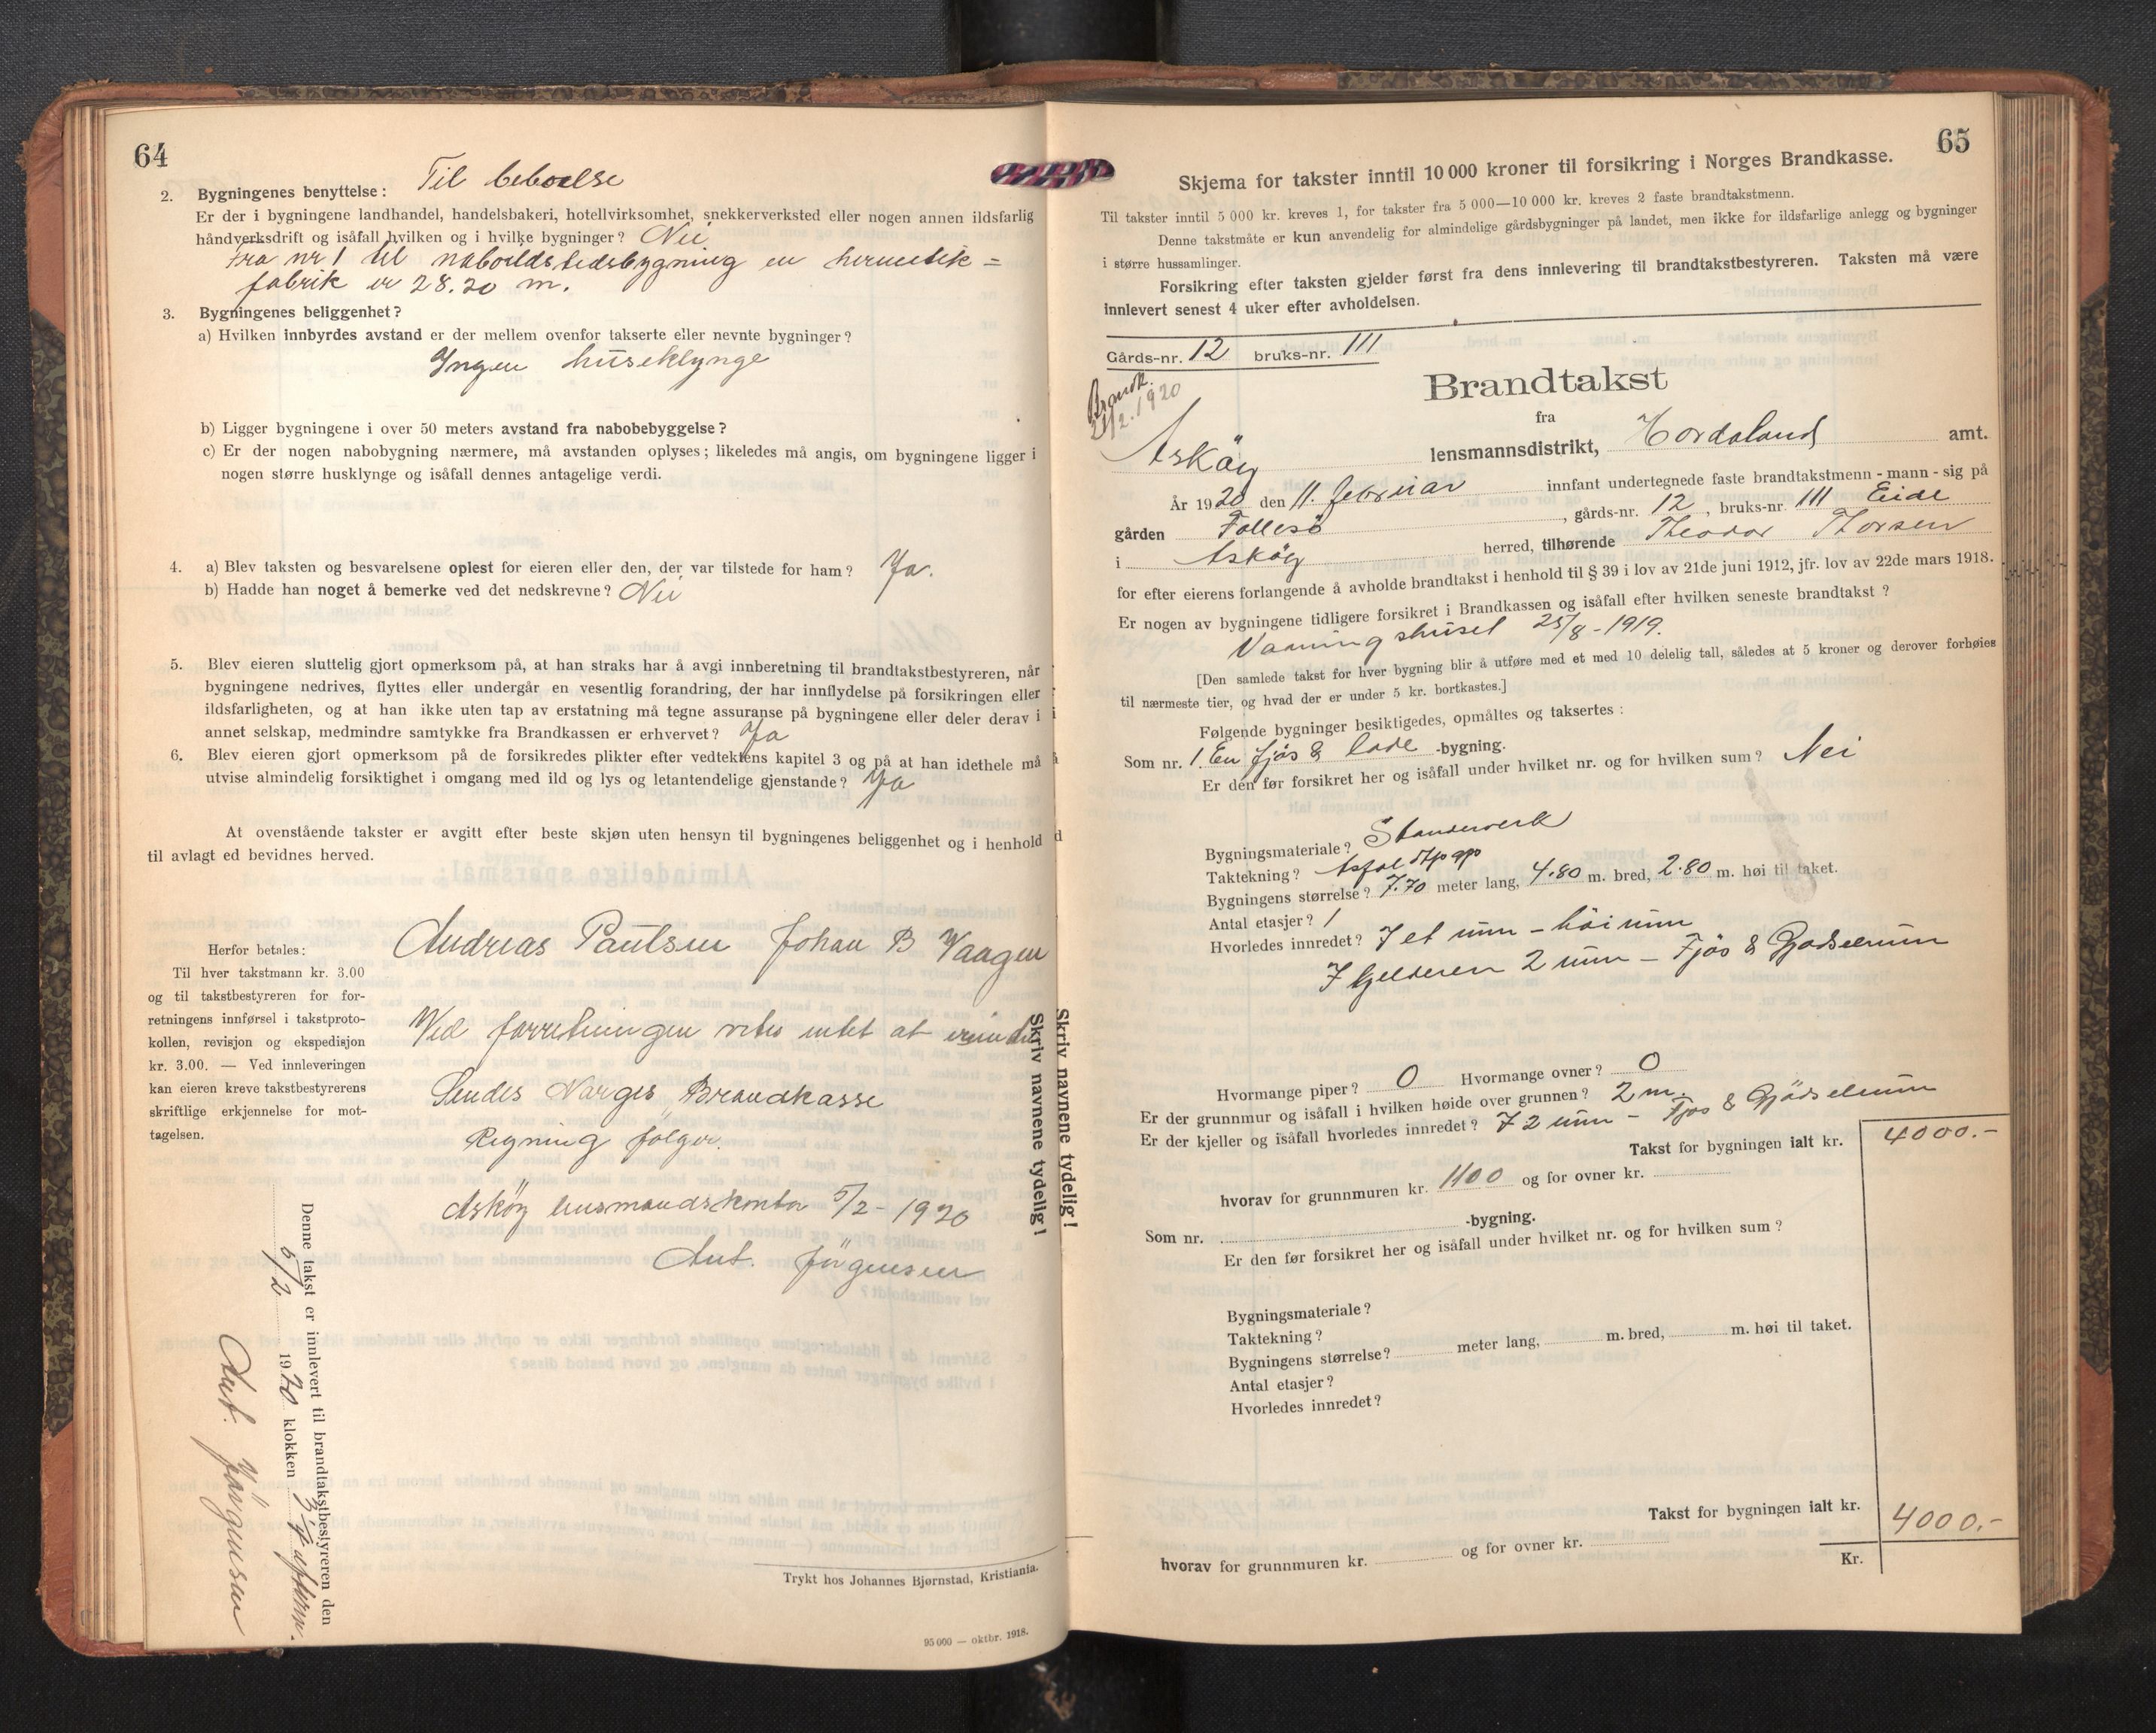 64
2. Bygningenes benyttelse: Til beboelse
Er der i bygningene landhandel, handelsbakeri, hotellvirksomhet, snekkerverksted eller nogen annen ildsfarlig
håndverksdrift og isåfall hvilken og i hvilke bygninger? Nei
Fra nr 1 til naboildstedsbygning en hermetik =
fabrik er 28.20 m.
3. Bygningenes beliggenhet?
a) Hvilken innbyrdes avstand er der mellem ovenfor takserte eller nevnte bygninger?
Ingen huseklynge
b) Ligger bygningene i over 50 meters avstand fra nabobebyggelse?
c) Er der nogen nabobygning nærmere, må avstanden oplyses; likeledes må angis, om bygningene ligger i
nogen større husklynge og isåfall dennes antagelige verdi.
4. a) Blev taksten og besvarelsene oplest for eieren eller den, der var tilstede for ham? Ja.
b) Hadde han noget å bemerke ved det nedskrevne? Nei
5. Blev eieren sluttelig gjort opmerksom på, at han straks har å avgi innberetning til brandtakstbestyreren, når
bygningene nedrives, flyttes eller undergår en vesentlig forandring, der har innflydelse på forsikringen eller
ildsfarligheten, og at han ikke uten tap av erstatning må tegne assuranse på bygningene eller deler derav i
annet selskap, medmindre samtykke fra Brandkassen er erhvervet? Ja
6. Blev eieren gjort opmerksom på de forsikredes plikter efter vedtektens kapitel 3 og på at han idethele må
utvise almindelig forsiktighet i omgang med ild og lys og letantendelige gjenstande? Ja
At ovenstående takster er avgitt efter beste skjøn uten hensyn til bygningenes beliggenhet og i henhold
til avlagt ed bevidnes herved.
Andreas Paulsen Johan B Waagen
Herfor betales:
Til hver takstmann kr. 3.00
og til takstbestyreren for for-
retningens innførsel i takstproto-
kollen, revisjon og ekspedisjon
kr. 3.00. — Ved innleveringen
kan eieren kreve takstbestyrerens
skriftlige erkjennelse for mot-
tagelsen.
Ved forretningen vites intet at erindre
Sendes Norges Brandkasse
Regning følger.
Asköy lensmandskontor 5/2 - 1920
Ant. Jörgensen
Skriv navnene tydelig!
Denne takst er innlevert til brandtakstbestyreren den
5/2 1920 klokken 3 1/4 efterm.
Ant. Jörgensen
Trykt hos Johannes Bjørnstad, Kristiania.
95 000 — oktbr. 1918.
65
Skjema for takster inntil 10 000 kroner til forsikring i Norges Brandkasse.
Til takster inntil 5 000 kr. kreves 1, for takster fra 5 000—10 000 kr. kreves 2 faste brandtakstmenn.
Denne takstmåte er kun anvendelig for almindelige gårdsbygninger på landet, men ikke for ildsfarlige anlegg og bygninger
i større hussamlinger.
Forsikring efter taksten gjelder først fra dens innlevering til brandtakstbestyreren. Taksten må være
innlevert senest 4 uker efter avholdelsen.
Gårds-nr. 12 bruks-nr. 111
Brandtakst
fra
Asköy lensmannsdistrikt, Hordaland amt.
År 1920 den 11. februar innfant undertegnede faste brandtakstmenn - mann - sig på
gården Follesö, gårds-nr. 12, bruks-nr. 111 Eide
i Asköy herred, tilhørende Theodor Thorsen
for efter eierens forlangende å avholde brandtakst i henhold til § 39 i lov av 21de juni 1912, jfr. lov av 22de mars 1918.
Er nogen av bygningene tidligere forsikret i Brandkassen og isåfall efter hvilken seneste brandtakst?
Vaaningshuset 25/8 - 1919.
[Den samlede takst for hver bygning blir å utføre med et med 10 delelig tall, således at 5 kroner og derover forhøies
til nærmeste tier, og hvad der er under 5 kr. bortkastes.]
Følgende bygninger besiktigedes, opmåltes og taksertes:
Som nr. 1. En fjös & lade -bygning.
Er den før forsikret her og isåfall under hvilket nr. og for hvilken sum? Nei
Bygningsmateriale? Standerverk
Taktekning?
Bygningens størrelse? 7.70 meter lang, 4.80 m. bred, 2.80 m. høi til taket.
Antal etasjer? 1
Hvorledes innredet? I et rum - höirum
I kjelderen 2 rum - Fjös & Gjödselrum
Hvormange piper? 0 Hvormange ovner? 0
Er der grunnmur og isåfall i hvilken høide over grunnen? 2 m.
Er der kjeller og isåfall hvorledes innredet? I 2 rum - Fjös & Gjödselrum
Takst for bygningen ialt kr. 4000.-
hvorav for grunnmuren kr. 1100 og for ovner kr.
Som nr. -bygning.
Er den før forsikret her og isåfall under hvilket nr. og for hvilken sum?
Bygningsmateriale?
Taktekning?
Bygningens størrelse? meter lang, m. bred, m. høi til taket.
Antal etasjer?
Hvorledes innredet?
Takst for bygningen ialt kr.
hvorav for grunnmuren kr. og for ovner kr.
Kr. 4000.-
Skriv navnene tydelig!